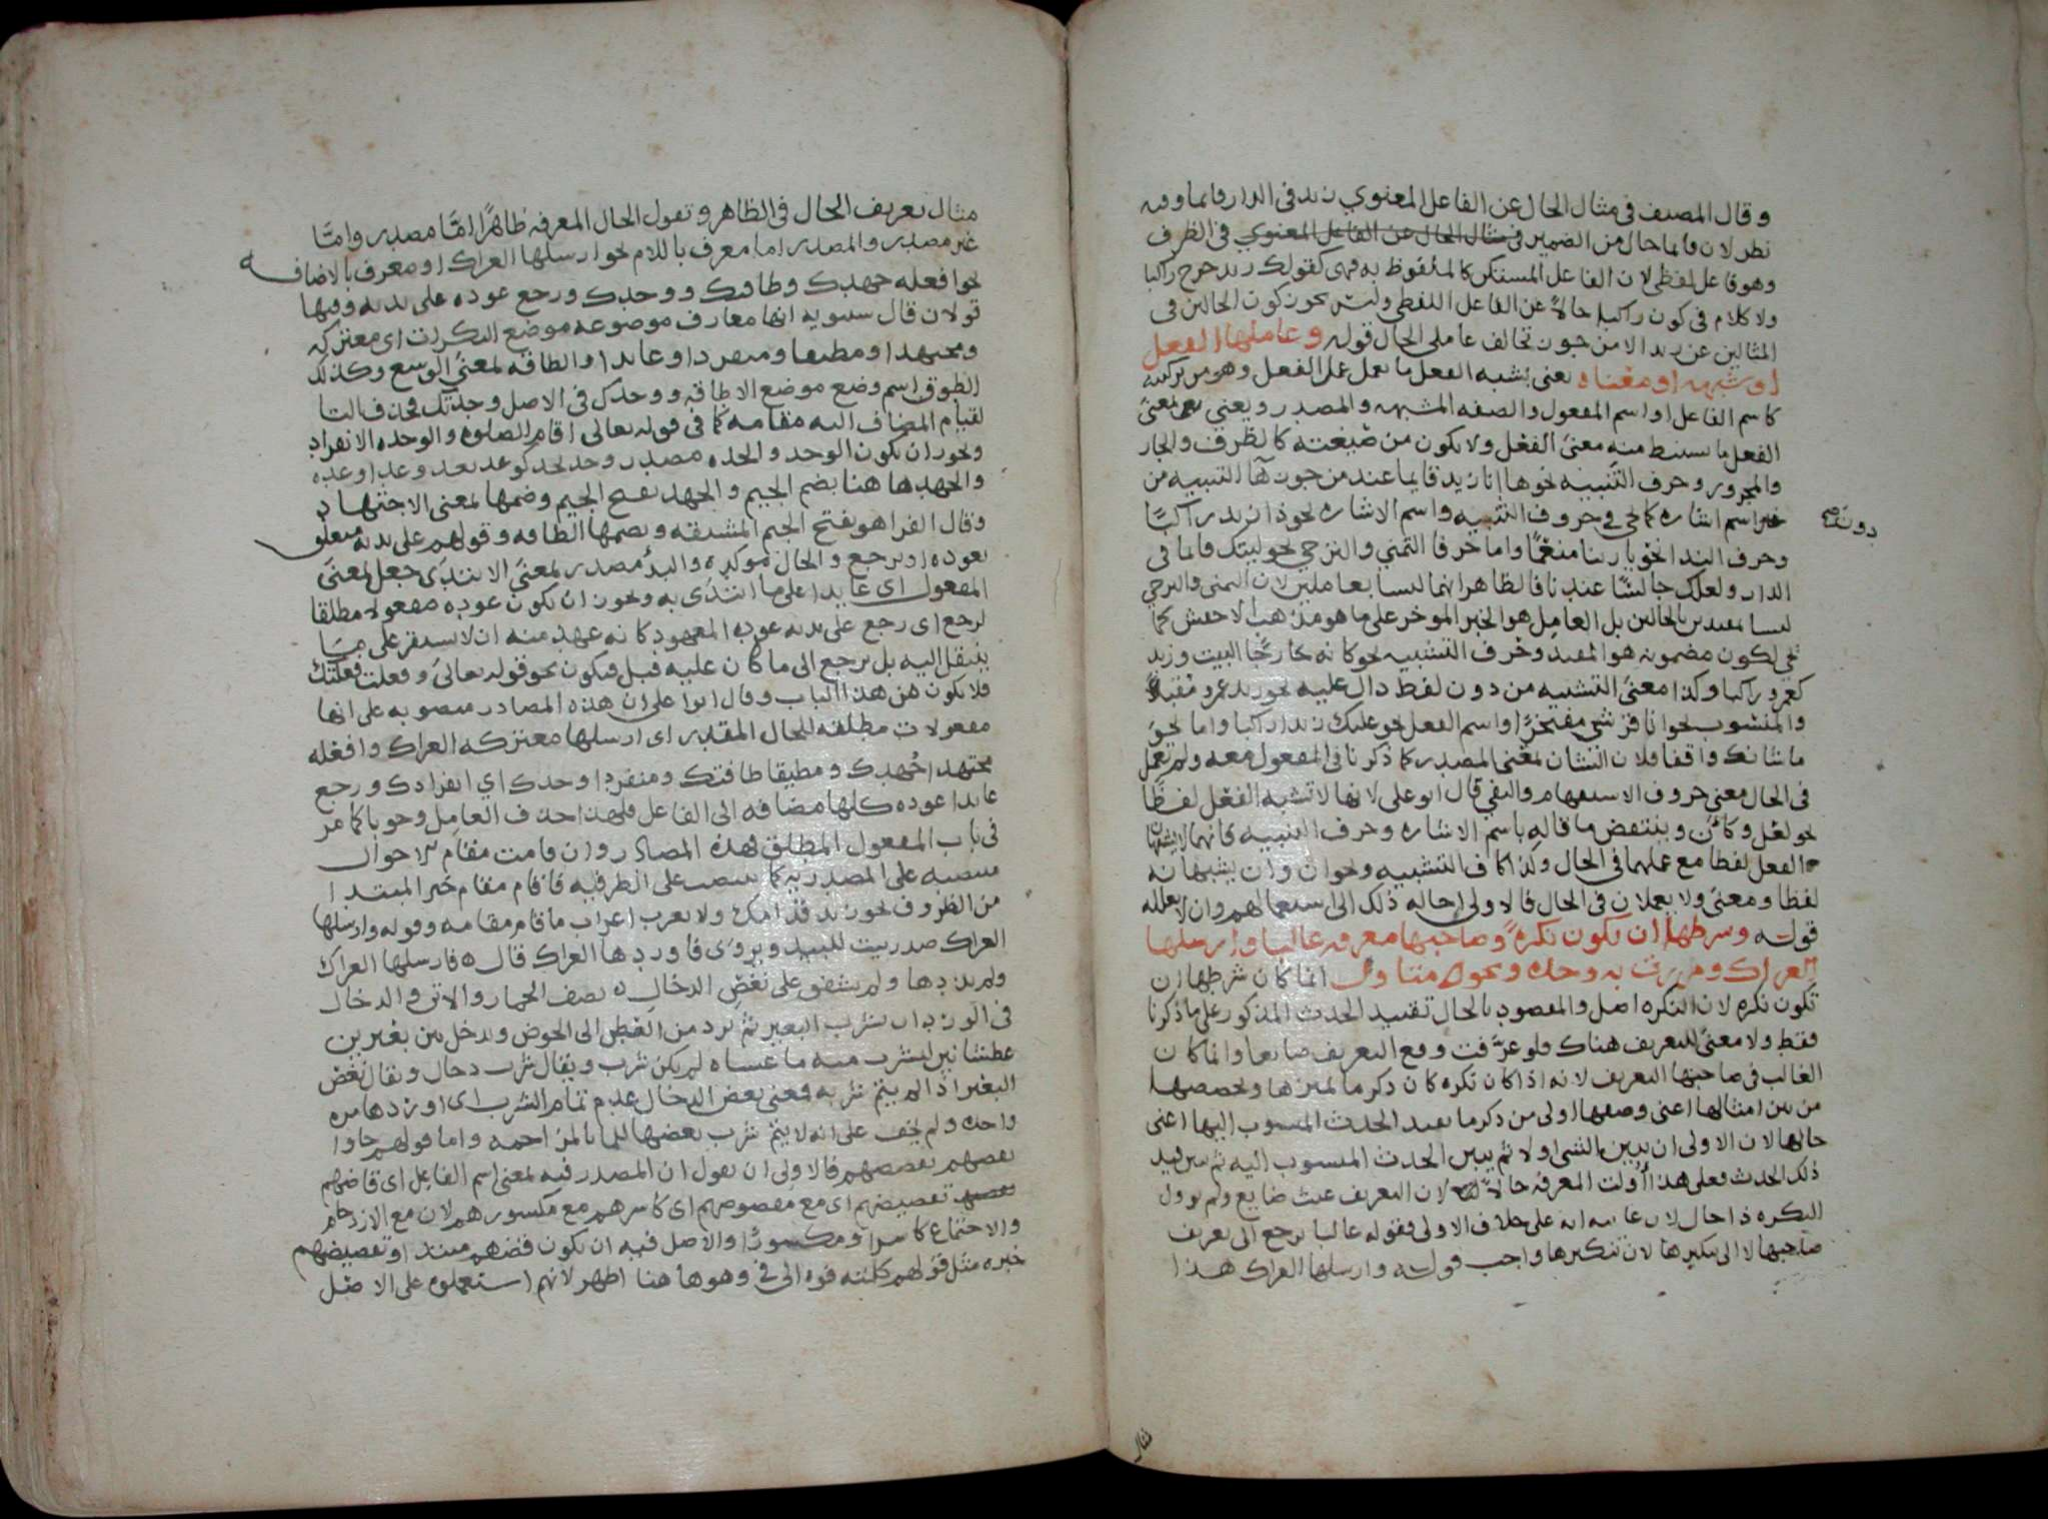 وقال المصنف في مثال الحال عن الفاعل المعنوي زيد في الدار قائما وفيه
نظر لان قائما حال من الضمير في مثال الحال عن الفاعل المعنوي في الظرف
وهو فاعل لفظي لان الفاعل المستكن كالملفوظ به فهي كقولك زيد خرج راكبا
ولا كلام في كون راكبا حالا عن الفاعل اللفظي وليس يجوز كون الحالين في
المثالين عن زيد الا من جوز تخالف عاملي الحال قوله وعاملها الفعل
او شبهه او معناه يعني بشبه الفعل ما يعمل عمل الفعل وهو من تركيبه
كاسم الفاعل او اسم المفعول والصفه المشبهه والمصدر ويعني بمعنى
الفعل ما يستنبط منه معنى الفعل ولا يكون من صيغته كالظرف والجار
والمجرور وحرف التنبيه نحو ها انا زيد قايما عند من جوز ها التنبيه من
غير اسم اشاره كما يجي في حروف التنبيه واسم الاشاره نحو ذا زيد راكبا
دون
وحرف الندا نحو يا ربنا منعما واما حرفا التمني والترجي نحو ليتك قائما في
الدار ولعلك جالسا عندنا فالظاهر انهما ليسا بعاملين لان التمني والترجي
ليسا بمقيدين بالحالين بل العامل هو الخبر الموخر على ما هو مذهب الاخفش
لكون مضمونه هو المقيد وحرف التشبيه نحو كانه خارجا البيت وزيد
كعمرو راكبا وكذا معنى التشبيه من دون لفظ دال عليه نحو زيد عمرو مقبلا
والمنسوب نحو انا قرشي مفتخرا واسم الفعل نحو عليك زيدا راكبا واما نحو
ما شانك واقفا فلان الشان بمعنى المصدر كما ذكرنا في المفعول معه ولم يعمل
في الحال معنى حروف الاستفهام والنفي قال ابو علي لانها لا تشبه الفعل لفظا
نحو لعل وكان وينتقض ما قاله باسم الاشاره وحرف التنبيه فانهما لا يشبهان
الفعل لفظا مع عملهما في الحال وكذا كاف التشبيه ونحو ان وان يشبهانه
لفظا ومعنى ولا يعملان في الحال فالاولى احاله ذلك الى استعمالهم وان لا يعلله
قوله وشرطها ان تكون نكرة وصاحبها معرفه غالبا وارسلها
العراك ومررت به وحده ونحوه متاول انما كان شرطها ان
تكون نكره لان النكره اصل والمقصود بالحال تقييد الحدث المذكور على ما ذكرنا
فقط ولا معنى للتعريف هناك فلو عرفت وقع التعريف ضايعا وانما كان
الغالب في صاحبها التعريف لانه اذا كان نكره كان ذكر ما يميزها ويخصصها
من بين امثالها اعني وصفها اولى من ذكر ما يقيد الحدث المنسوب اليها اعني
حالها لان الاولى ان يبين الشي اولا ثم يبين الحدث المنسوب اليه ثم يبين قيد
ذلك الحدث فعلى هذا اولت المعرفه حالا لان التعريف عبث ضايع ولم يوول
النكره ذا حال لان غايته انه على خلاف الاولى فقوله غالبا يرجع الى تعريف
صاحبها لا الى تنكيرها لان تنكيرها واجب قوله وارسلها العراك هذا
مثال
مثال تعريف الحال في الظاهر وتقول الحال المعرفه ظاهرا اما مصدر واما
غير مصدر والمصدر اما معرف باللام نحو ارسلها العراك او معرف بالاضافه
نحو افعله جهدك وطاقتك ووحدك ورجع عوده على بدئه وفيها
قولان قال سيبويه انها معارف موضوعه موضع النكرات اي معتركه
ومجتهدا ومطيقا ومنفردا وعائدا والطاقه بمعنى الوسع وكذلك
الطوق اسم وضع موضع الاطاقه ووحدك في الاصل وحدتك فحذف التا
لقيام المضاف اليه مقامه كما في قوله تعالى اقام الصلوه والوحده الانفراد
ويجوز ان يكون الوحد والحده مصدر وحد يحد كوعد يعد وعدا وعده
والجهد ها هنا بضم الجيم والجهد بفتح الجيم وضمها بمعنى الاجتهاد
وقال الفرا هو بفتح الجيم المشقه وبضمها الطاقه وقولهم على بدئه متعلق
بعوده او برجع والحال موكده والبدء مصدر بمعنى الابتدى جعل بمعنى
المفعول اي عايدا على ما ابتدى به ويجوز ان يكون عوده مفعولا مطلقا
لرجع اي رجع على بدئه عوده المعهود كانه عهد منه ان لا يستقر على ما
ينتقل اليه بل يرجع الى ما كان عليه قبل فيكون نحو قوله تعالى وفعلت فعلتك
فلا يكون من هذا الباب وقال ابو علي ان هذه المصادر منصوبه على انها
مفعولات مطلقه للحال المقدر اي ارسلها معتركه العراك وافعله
مجتهدا جهدك ومطيقا طاقتك ومنفردا وحدك اي انفرادك ورجع
عائدا عوده كلها مضافه الى الفاعل فلهذا حذف العامل وجوبا كما مر
في باب المفعول المطلق فهذه المصادر وان قامت مقام الاحوال
منتصبه على المصدريه كما ينتصب على الظرفيه ما قام مقام خبر المبتدا
من الظروف نحو زيد قدامك ولا يعرب اعراب ما قام مقامه وقوله وارسلها
العراك صدر بيت للبيد ويروى فاوردها العراك قال ه فارسلها العراك
ولم يذدها ولم يشفق على نغص الدخال ه يصف الحمار والاتن والدخال
في الورد ان يشرب البعير ثم يرد من العطن الى الحوض ويدخل بين بعيرين
عطشانين ليشرب منه ما عساه لم يكن شرب ويقال شرب دخال ويقال نغص
البعير اذا لم يتم شربه فمعنى نغص الدخال عدم تمام الشرب اي اوردها مره
واحده ولم يخف على انه لا يتم شرب بعضها للما بالمزاحمه واما قولهم جاوا
قضهم بقضيضهم فالاولى ان نقول ان المصدر فيه بمعنى اسم الفاعل اي قاضهم
بقضيضهم اي مع مقضوضهم اي كاسرهم مع مكسورهم لان مع الازدحام
والاجتماع كاسرا ومكسورا والاصل فيه ان يكون قضهم مبتدا وبقضيضهم
خبره مثل قولهم كلمته فوه الى في وهو ها هنا اظهر لانهم استعملوه على الاصل